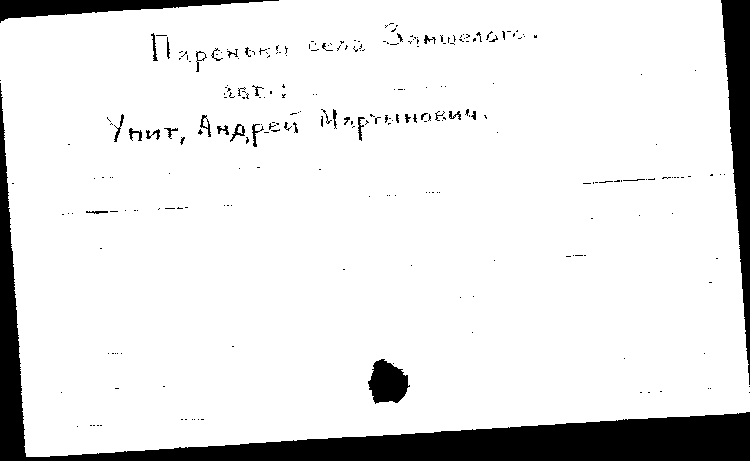 Пареньки села Замшелого.
авт.:
Упит, Андрей Мартынович.